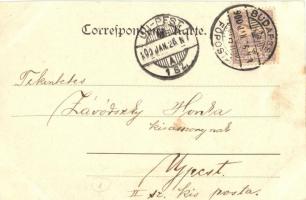 Correspondenz-Karte.
UJ-PEST
900 JAN. 28
A
1 SZ.
BUDAPEST
FŐPOSTA
Tekintetes
Závodszky Ilonka
kisasszonynak
Ujpest.
II sz. kis posta.